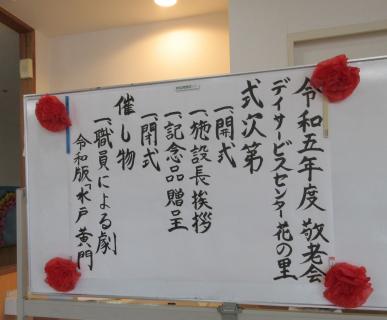 令和五年度 敬老会
デイサービスセンター花の里
式次第
一、開式
一、施設長挨拶
一、記念品贈呈
一、閉式
催し物
一、職員による劇
令和版「水戸黄門」